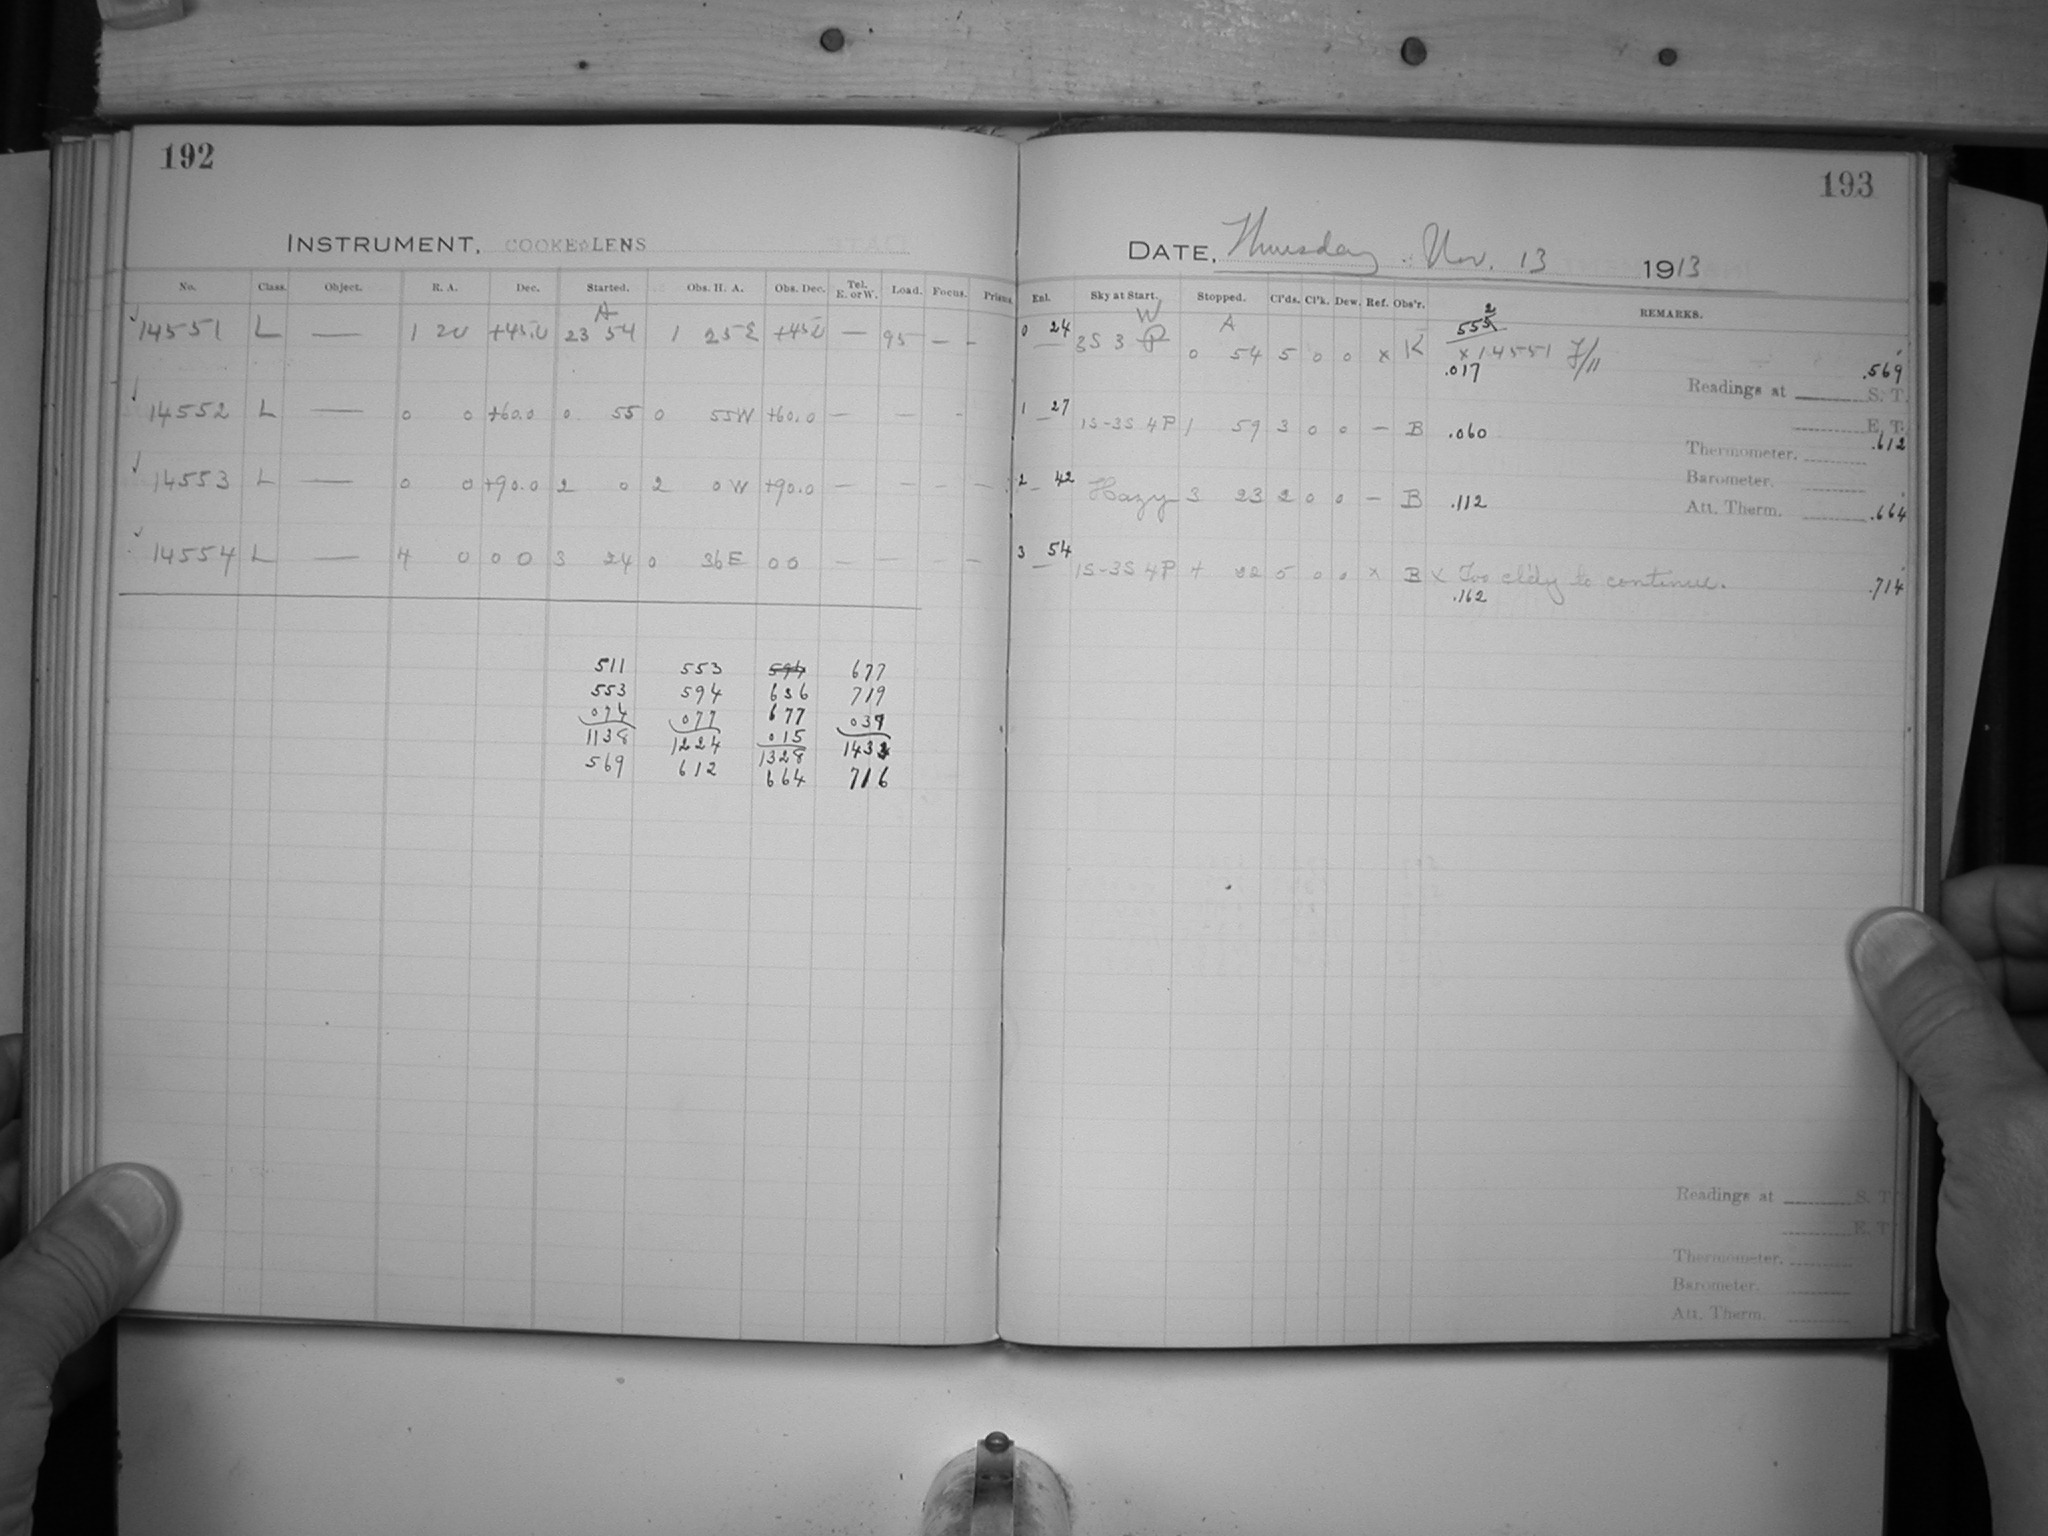 192
193
INSTRUMENT, COOKE LENS
DATE, Thursday Nov. 13 1913
No. Class. Object. R. A. Dec. Started. Obs. H. A. Obs. Dec. Tel. E. or W. Load. Focus. Prisms.
Enl. Sky at Start. Stopped. Cl'ds. Cl'k. Dew. Ref. Obs'r. REMARKS.
A
W A 2
14551 L — 1 20 +45.0 23 54 1 25 E +45.0 — 95 — -
0 24 3S 3 P 0 54 5 0 0 x K x 14551 F/11
.017 .569
Readings at S. T.
14552 L — 0 0 +60.0 0 55 0 55W +60.0 — — -
1 27 1S-3S 4P 1 59 3 0 0 — B .060
E. T.
.612
Thermometer.
14553 L — 0 0 +90.0 2 0 2 0 W +90.0 — — - —
2 42 Hazy 3 23 2 0 0 — B .112
Barometer.
Att. Therm. .664
14554 L — 4 0 0 0 3 24 0 36E 0 0 — — — —
3 54 1S-3S 4P 4 22 5 0 0 x B x Too cl'dy to continue.
.162 .714
511 553 594 677
553 594 636 719
074 077 677 037
1138 1224 015 1432
569 612 1328 716
664
Readings at S. T
E. T
Thermometer.
Barometer.
Att. Therm.